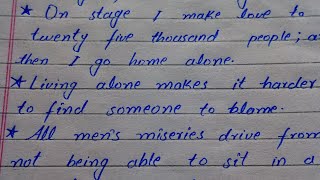 * On stage I make love to
twenty five thousand people; a
then I go home alone.
* Living alone makes it harder
to find someone to blame.
* All men's miseries drive from
not being able to sit in a